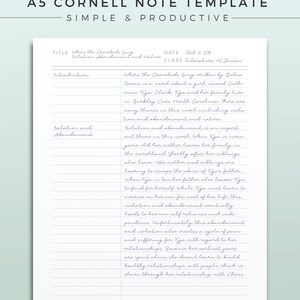 A5 CORNELL NOTE TEMPLATE
SIMPLE & PRODUCTIVE
TITLE Where the Crawdads Sing DATE
Isolation, Abandonment and Nature CLASS Literature
Introduction Where the Crawdads Sing written by Delia
Owens is a novel about a girl named Catherine
"Kya" Clark. Kya and her family live
in Barkley Cove, North Carolina. There are
many themes in this novel including isolation
and abandonment and nature.
Isolation and Isolation and abandonment is an important
Abandonment theme in this novel. When Kya is
years old her mother leaves her family in
the marshland. Shortly after her siblings
also leave. Her mother and siblings are
leaving to escape the abuse of Kya's father.
When Kya is ten father also leaves Kya
to fend for herself. While Kya must learn to
survive on her own for most of her life this
isolation and abandonment eventually
leads to her own self reliance and independence.
Unfortunately this abandonment
and isolation also creates a cycle of pain
and suffering for Kya with regard to her
relationships. Because her earliest years
are spent alone she doesn't learn to build
healthy relationships with people which is
shown through her relationship with Chase